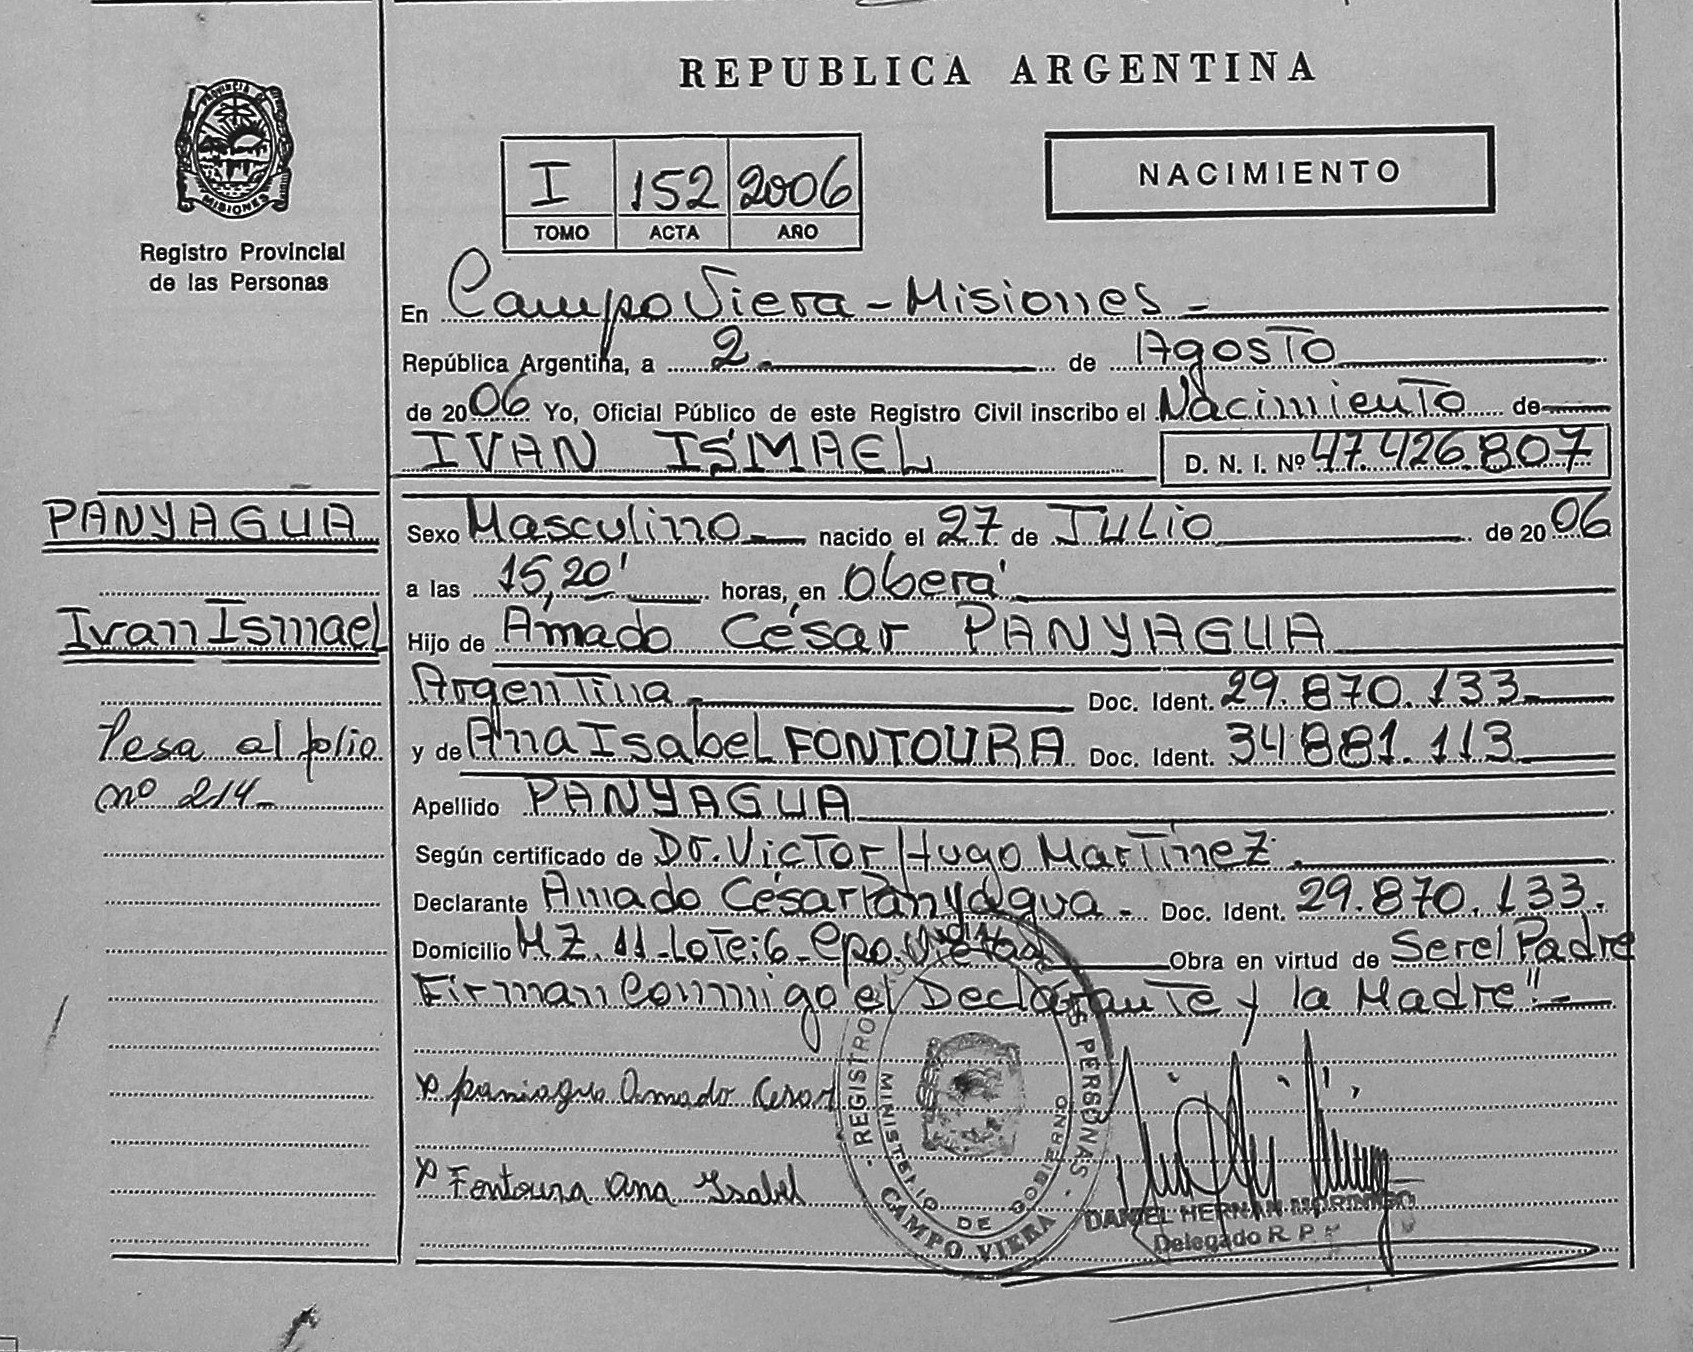 REPUBLICA ARGENTINA
PROVINCIA DE
MISIONES
Registro Provincial
de las Personas
I 152 2006
TOMO ACTA AÑO
NACIMIENTO
En Campo Viera - Misiones -
República Argentina, a 2 de Agosto
de 2006 Yo, Oficial Público de este Registro Civil inscribo el Nacimiento de
IVAN ISMAEL D. N. I. Nº 47.426.807
PANYAGUA
Ivan Ismael
Pasa al folio
nº 214-
Sexo Masculino nacido el 27 de JULIO de 2006
a las 15,20' horas, en Oberá
Hijo de Amado César PANYAGUA
Argentina Doc. Ident. 29.870.133
y de Ana Isabel FONTOURA Doc. Ident. 34.881.113
Apellido PANYAGUA
Según certificado de Dr. Victor Hugo Martínez.
Declarante Amado César Panyagua - Doc. Ident. 29.870.133.
Domicilio MZ. 11-Lote:6- Obra en virtud de Ser el Padre
Firman Conmigo el Declarante y la Madre"-
paniagua Amado Cesar
Fontoura Ana Isabel
REGISTRO PERSONAS
MINISTERIO DE GOBIERNO
CAMPO VIERA
DANIEL HERNAN
Delegado R. P.